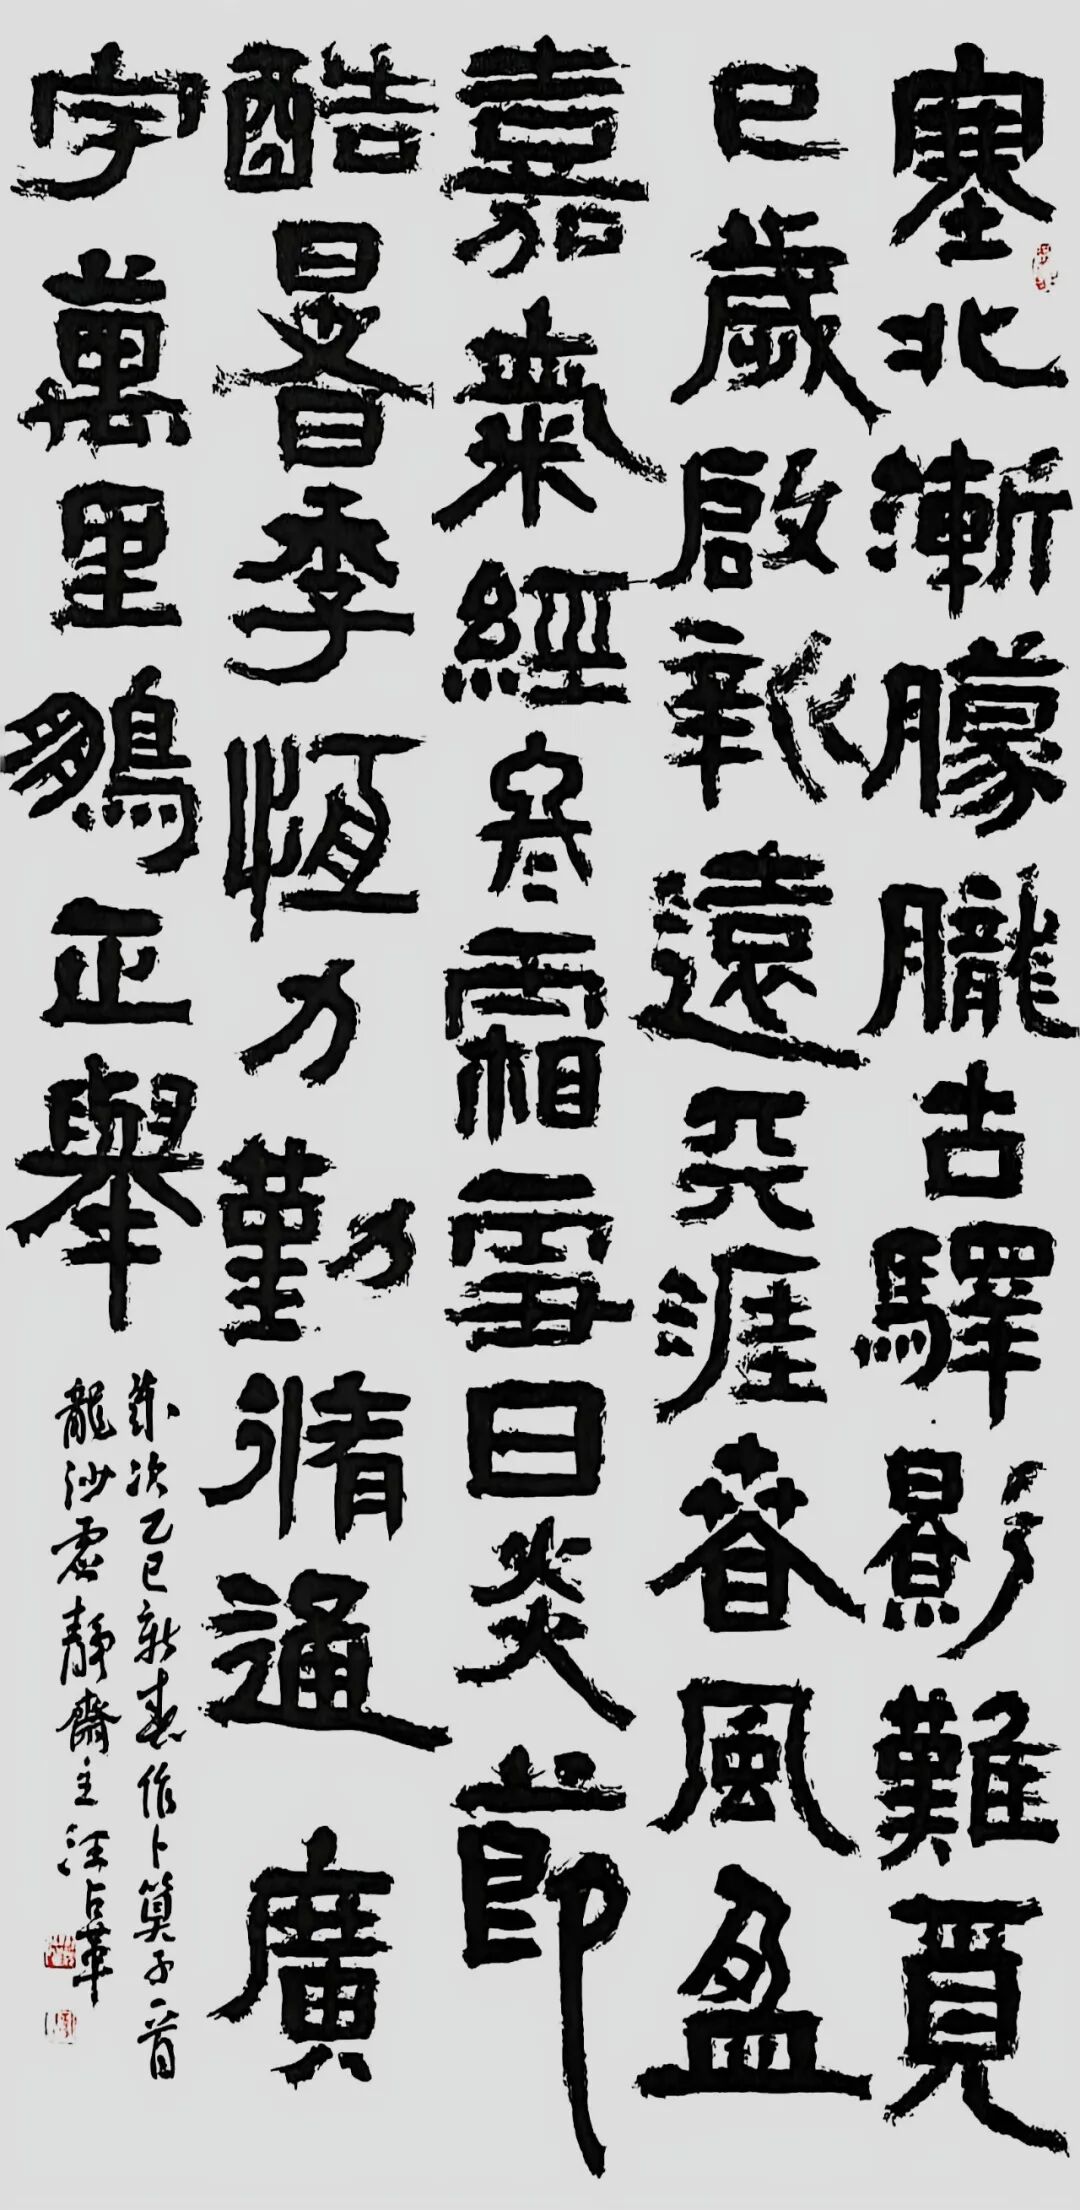 塞北漸朦朧古驛影難覓
巳歲啟新遠天涯春風盈
嘉氣經寒霜雪日炎節
酷暑季恆力勤脩通廣
宇萬里鵬正舉
歲次乙巳新春作卜算子一首
龍沙虛靜齋主汪占